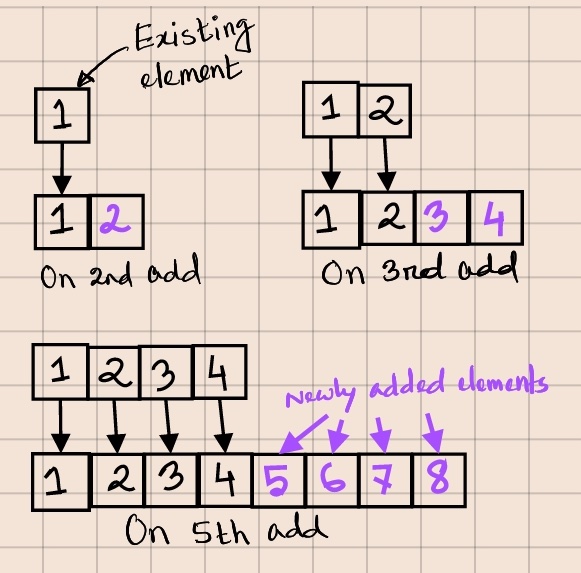 Existing
element
1
1 2
On 2nd add
1 2
1 2 3 4
On 3rd add
1 2 3 4
Newly added elements
1 2 3 4 5 6 7 8
On 5th add